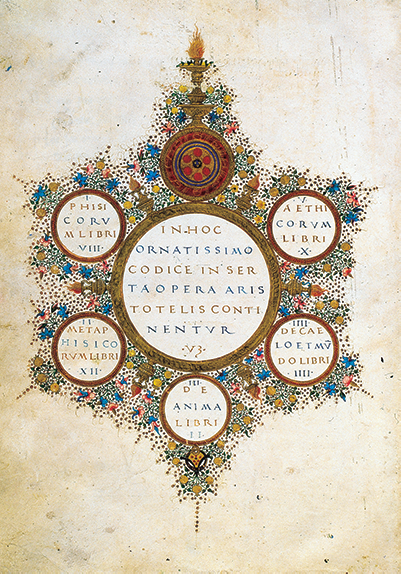 IN·HOC
ORNATISSIMO
CODICE IN SER
TA OPERA ARIS
TOTELIS CONTI
NENTVR
·V3·
·I·
PHISI
CORV
M LIBRI
VIII·
·V·
AETHI
CORVM
LIBRI
·X·
·II·
METAP
HISICO
RVM LIBRI
XII·
IIII·
DE CAE
LO ET MV̄
DO LIBRI
IIII·
III·
DE
ANIMA
LIBRI
·II·